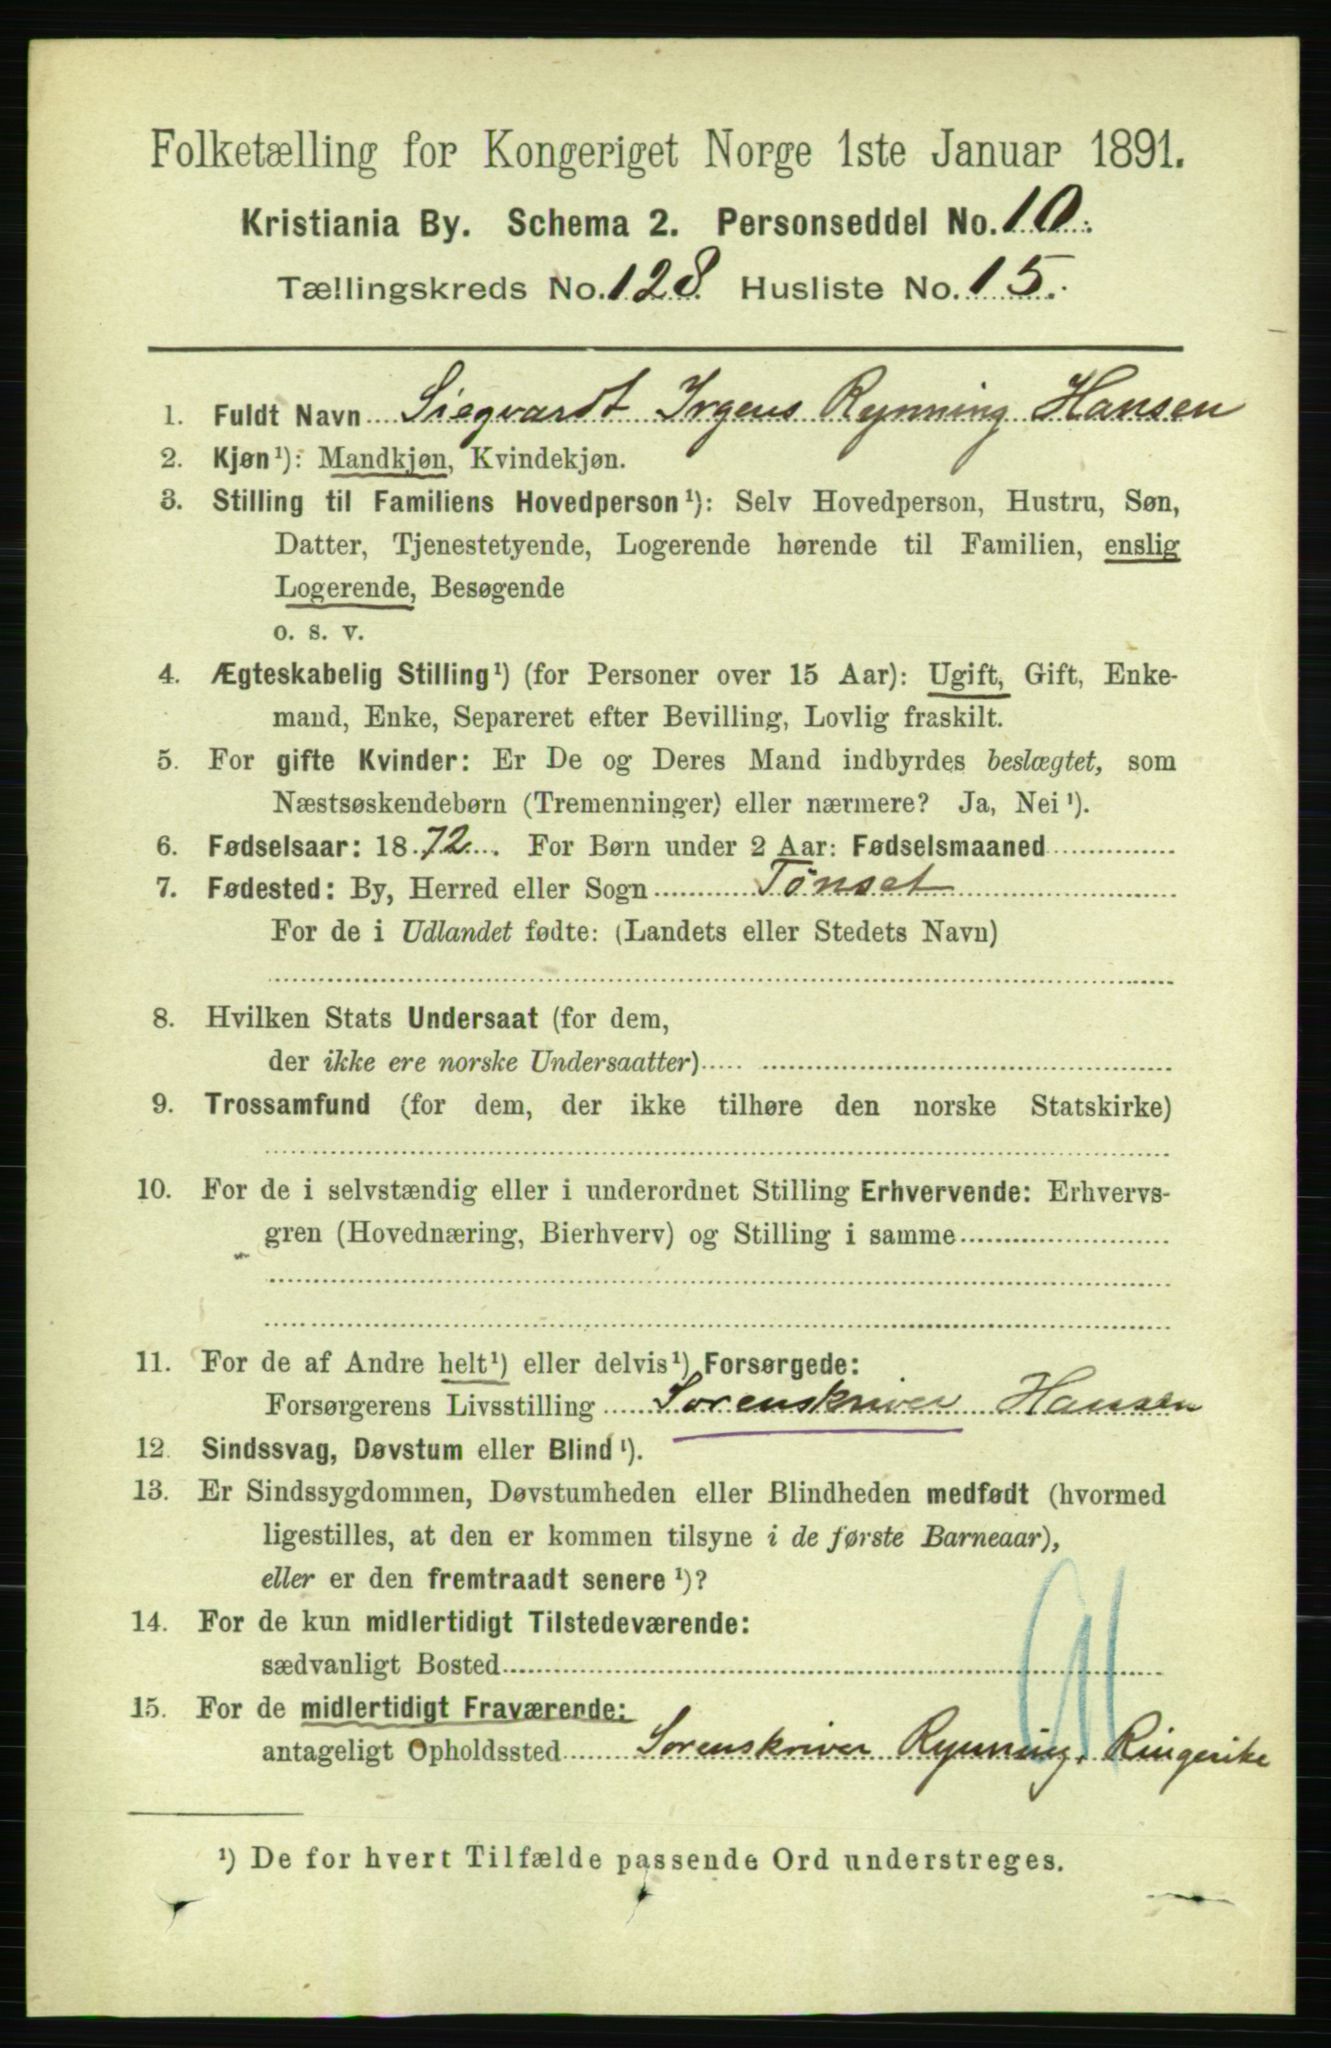 Folketælling for Kongeriget Norge 1ste Januar 1891.
Kristiania By. Schema 2. Personseddel No. 10.
Tællingskreds No. 128. Husliste No. 15.
1. Fuldt Navn Siegvardt Irgens Rynning Hansen
2. Kjøn¹): Mandkjøn, Kvindekjøn.
3. Stilling til Familiens Hovedperson¹): Selv Hovedperson, Hustru, Søn,
Datter, Tjenestetyende, Logerende hørende til Familien, enslig
Logerende, Besøgende
o. s. v.
4. Ægteskabelig Stilling¹) (for Personer over 15 Aar): Ugift, Gift, Enke-
mand, Enke, Separeret efter Bevilling, Lovlig fraskilt.
5. For gifte Kvinder: Er De og Deres Mand indbyrdes beslægtet, som
Næstsøskendebørn (Tremenninger) eller nærmere? Ja, Nei¹).
6. Fødselsaar: 1872. For Børn under 2 Aar: Fødselsmaaned
7. Fødested: By, Herred eller Sogn Tönset
For de i Udlandet fødte: (Landets eller Stedets Navn)
8. Hvilken Stats Undersaat (for dem,
der ikke ere norske Undersaatter)
9. Trossamfund (for dem, der ikke tilhøre den norske Statskirke)
10. For de i selvstændig eller i underordnet Stilling Erhvervende: Erhvervs-
gren (Hovednæring, Bierhverv) og Stilling i samme
11. For de af Andre helt¹) eller delvis¹) Forsørgede:
Forsørgerens Livsstilling Sorenskriver Hansen
12. Sindssvag, Døvstum eller Blind¹).
13. Er Sindssygdommen, Døvstumheden eller Blindheden medfødt (hvormed
ligestilles, at den er kommen tilsyne i de første Barneaar),
eller er den fremtraadt senere¹)?
14. For de kun midlertidigt Tilstedeværende:
sædvanligt Bosted
15. For de midlertidigt Fraværende:
antageligt Opholdssted Sorenskriver Rynning, Ringerike
¹) De for hvert Tilfælde passende Ord understreges.